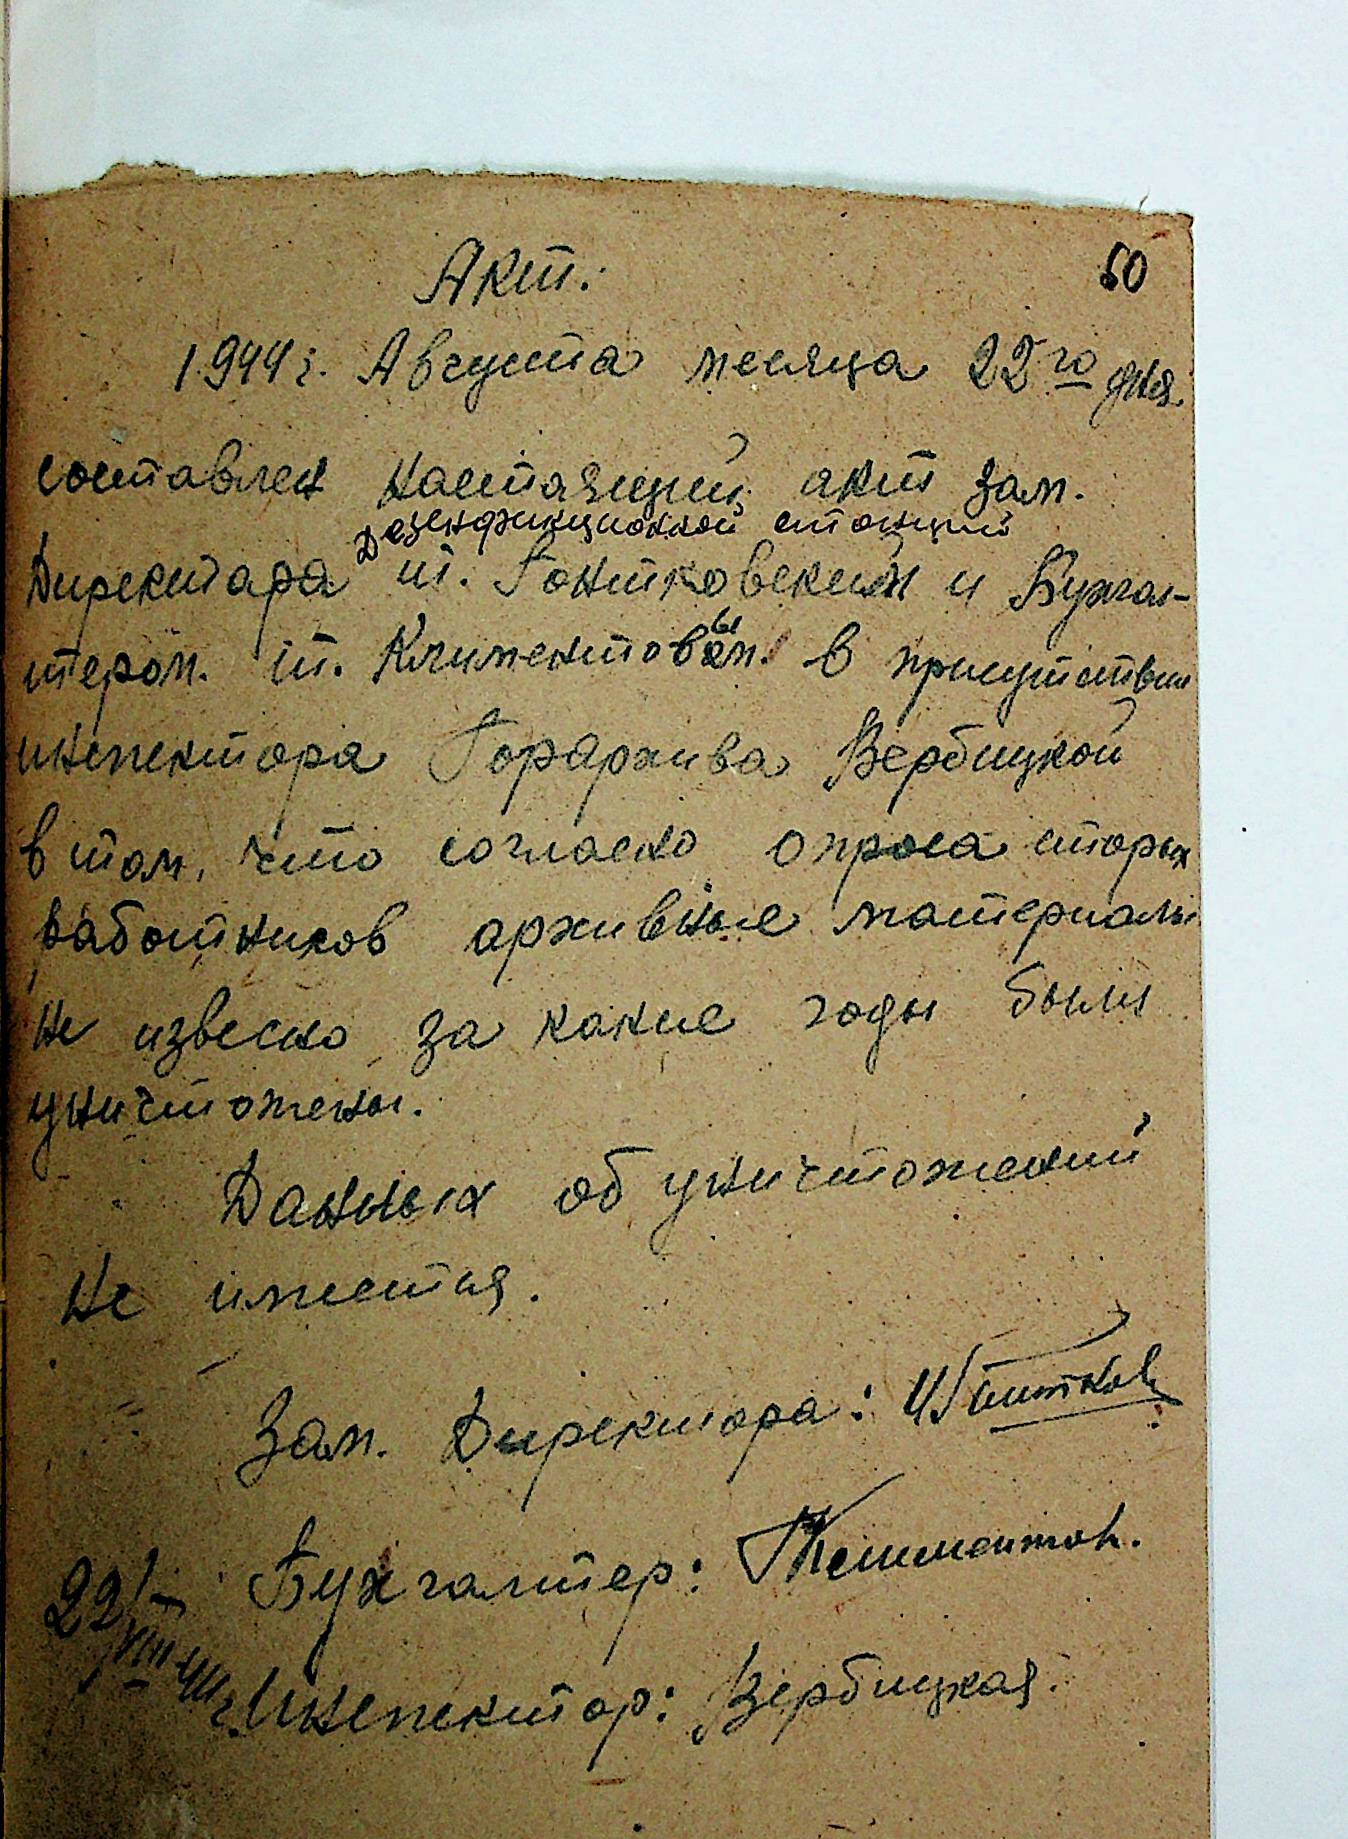 50
Акт.
1944 г. Августа месяца 22го дня
составлен настаящий акт зам.
Дезенфикционной станций
Директара т. Гонтковским и Бухгал-
тером. т. Климентовым. в присутствии
инспектора Горархива Вербицкой
в том, что согласно опроса старых
работников архивные материалы
не извесно за какие годы были
уничтожены.
Данных об уничтожений
не имеется.
Зам. Директора:
Бухгалтер: Климентов.
22/VIII-44 г. Инспектор: Вербицкая.